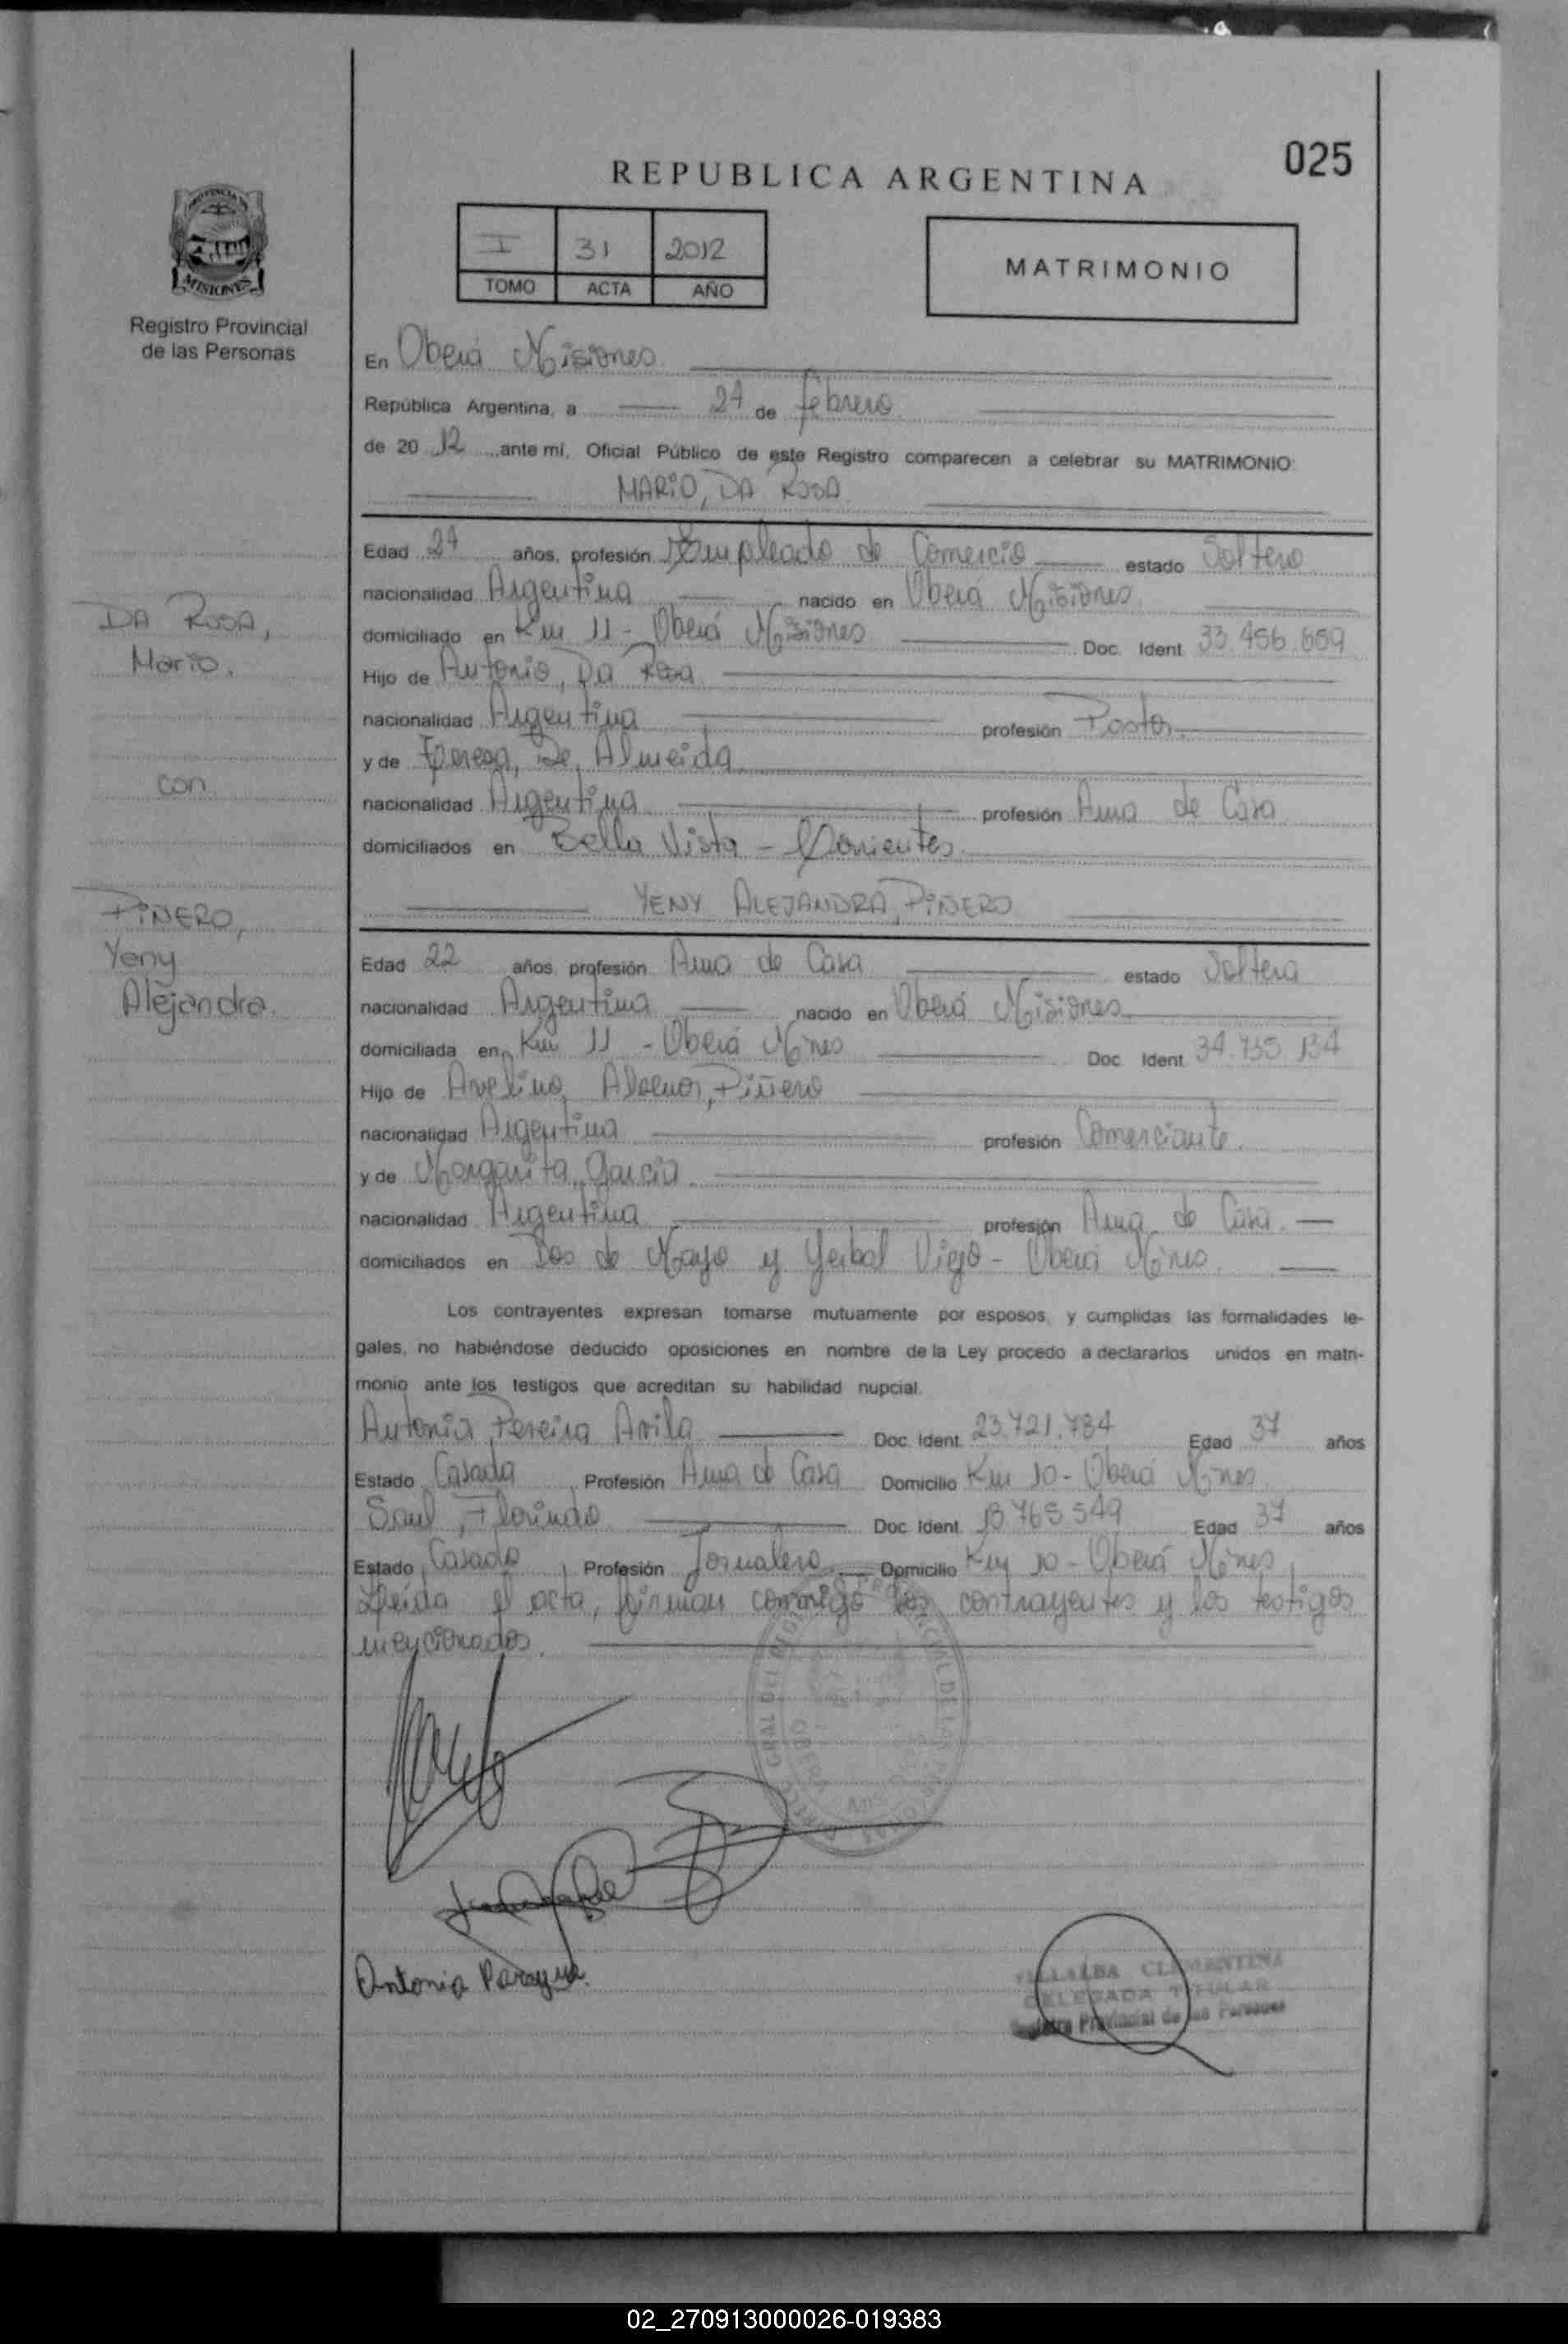 025
REPUBLICA ARGENTINA
I 31 2012
TOMO ACTA AÑO
MATRIMONIO
PROVINCIA DE
MISIONES
Registro Provincial
de las Personas
En Oberá Misiones
República Argentina, a 24 de febrero
de 20 12 ante mí, Oficial Público de este Registro comparecen a celebrar su MATRIMONIO:
MARIO, DA ROSA
Edad 24 años, profesión Empleado de Comercio estado Soltero
nacionalidad Argentina nacido en Oberá Misiones
domiciliado en Km 11 - Oberá Misiones Doc. Ident. 33.456.659
Hijo de Antonio, Da Rosa
nacionalidad Argentina profesión Pastor
y de Teresa, De Almeida
nacionalidad Argentina profesión Ama de Casa
domiciliados en Bella Vista - Corrientes
YENY ALEJANDRA, PIÑERO
DA ROSA,
Mario.
con
PIÑERO,
Yeny
Alejandra.
Edad 22 años, profesión Ama de Casa estado Soltera
nacionalidad Argentina nacido en Oberá Misiones
domiciliada en Km 11 - Oberá Mnes Doc. Ident. 34.735.134
Hijo de Avelino, Piñero
nacionalidad Argentina profesión Comerciante.
y de Margarita, Garcia
nacionalidad Argentina profesión Ama de Casa
domiciliados en Dos de Mayo y Yerbal Viejo - Oberá Mnes
Los contrayentes expresan tomarse mutuamente por esposos, y cumplidas las formalidades le-
gales, no habiéndose deducido oposiciones en nombre de la Ley procedo a declararlos unidos en matri-
monio ante los testigos que acreditan su habilidad nupcial.
Antonia, Pereira Avila Doc. Ident. 23.721.784 Edad 37 años
Estado Casada Profesión Ama de Casa Domicilio Km 10 - Oberá Mnes
Saul, Florindo Doc. Ident. 18.765.549 Edad 37 años
Estado Casado Profesión Jornalero Domicilio Km 10 - Oberá Mnes
Leída el acta, firman conmigo los contrayentes y los testigos
mencionados.
Antonia
VILLALBA CLEMENTINA
DELEGADA TITULAR
Registro Provincial de las Personas
02_270913000026-019383